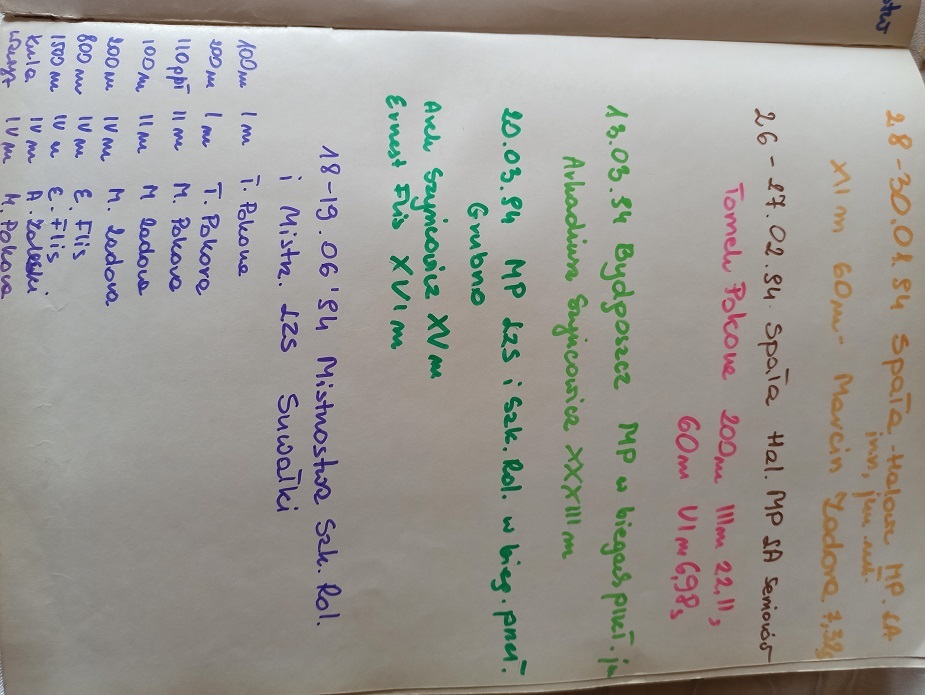 28-30.01.94 Spała - Halowe MP. LA
jun, jun. mł.
XI m 60m - Marcin Zadora 7,38s
26-27.02.94. Spała Hal. MP LA seniorów
Tomek Pokora 200m III m 22,11s
60m VI m 6,98s
13.03.94 Bydgoszcz MP w biegach przeł. ju
Arkadiusz Szyncowicz XXXIII m
20.03.94 MP LZS i Szk. Rol. w bieg. przeł.
Grubno
Arek Szyncowicz XV m
Ernest Flis XVI m
18-19.06'94 Mistrzostwa Szk. Rol.
i Mistrz. LZS Suwałki
100m I m T. Pokora
200m I m T. Pokora
110 ppł II m M. Pokora
100m II m M Zadora
200m IV m M. Zadora
800m IV m E. Flis
1500m IV m E. Flis
kula IV m A. Zaleski
IV m M. Pokora